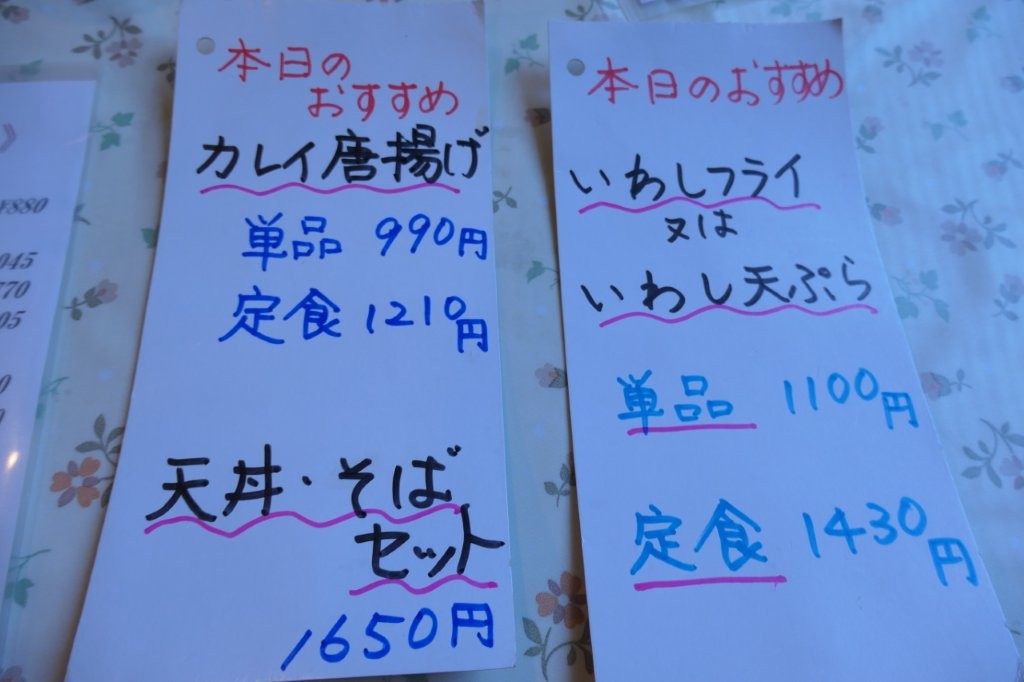 本日の
おすすめ
カレイ唐揚げ
単品 990円
定食 1210円
天丼・そば
セット
1650円
本日のおすすめ
いわしフライ
又は
いわし天ぷら
単品 1100円
定食 1430円
¥880
045
770
05
0